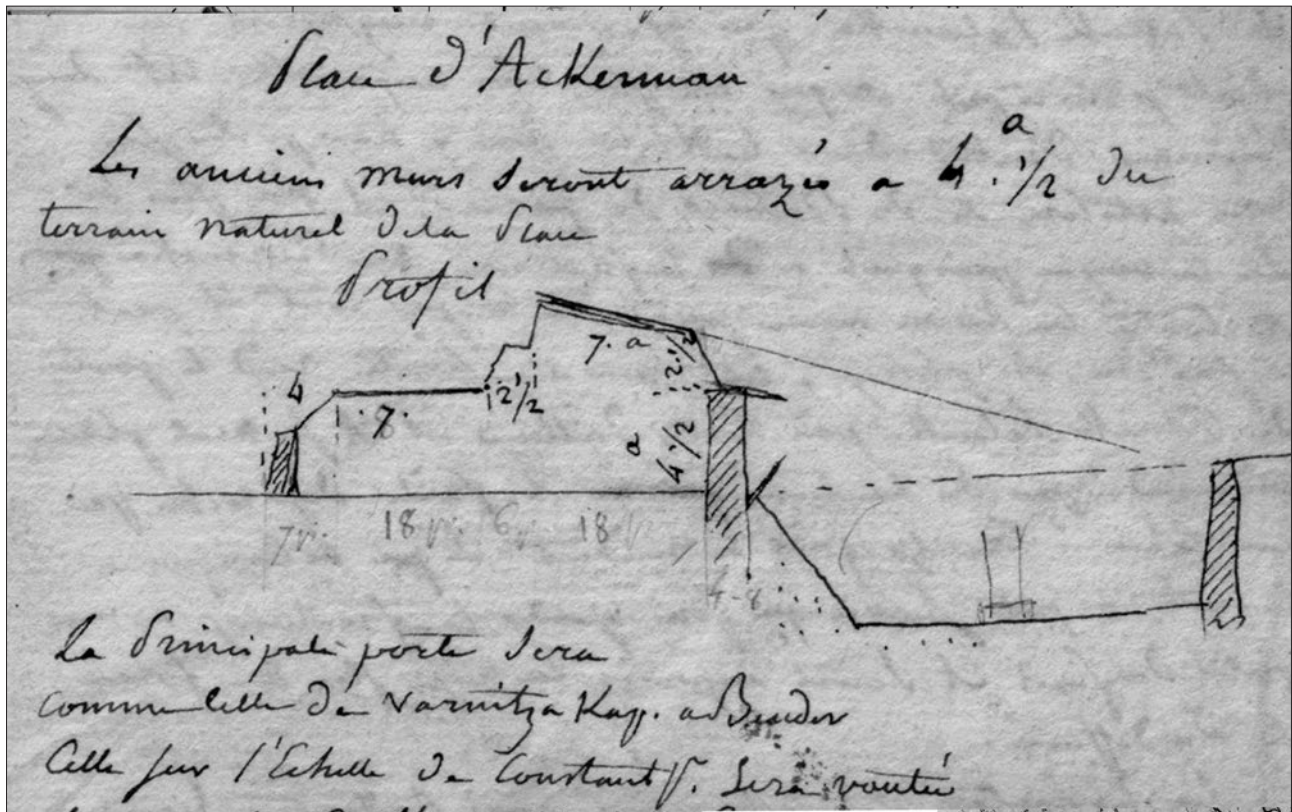 Place d'Ackerman
a
Les anciens murs seront arrazés a 4. 1/2 du
terrain naturel de la Place
Profil
7. a
2 1/2
4
2 1/2
7.
a
4 1/2
7 p. 18 p. 6 p. 18 p.
4-8
La Principale porte sera
comme celle de Varnitza Kap. a Bender
Celle sur l'Echelle de Constantp. sera voutée